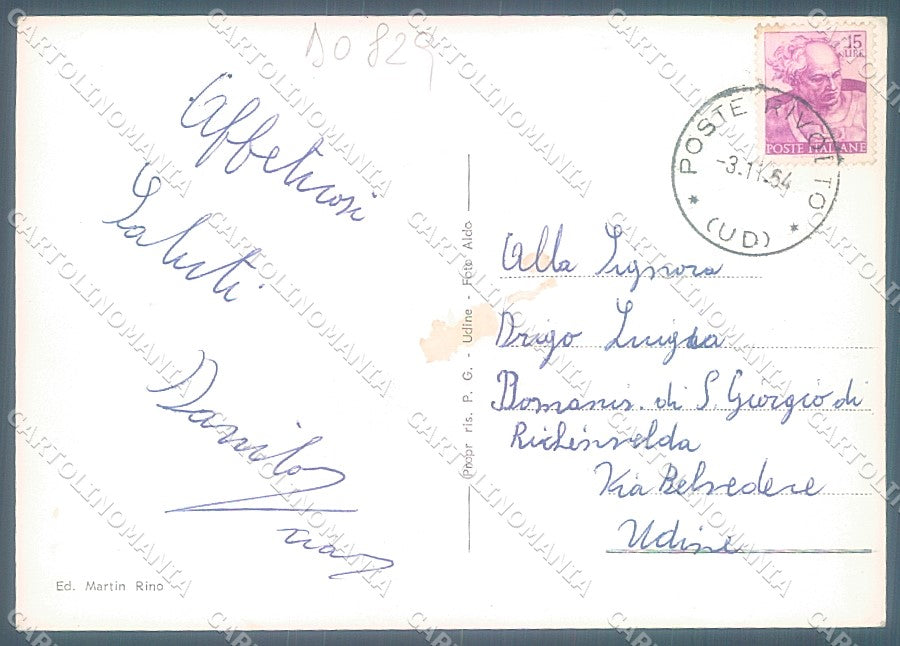 DO 829
15
LIRE
POSTE ITALIANE
POSTE RIVOLTO
-3.11.64
(UD)
Affettuosi
Saluti
Danilo
Alla Signora
Drigo Luigia
Domanis. di S. Giorgio di
Richinvelda
Via Belvedere
Udine
Propr. ris. P. G. - Udine - Foto Aldo
Ed. Martin Rino
CARTOLINOMANIA